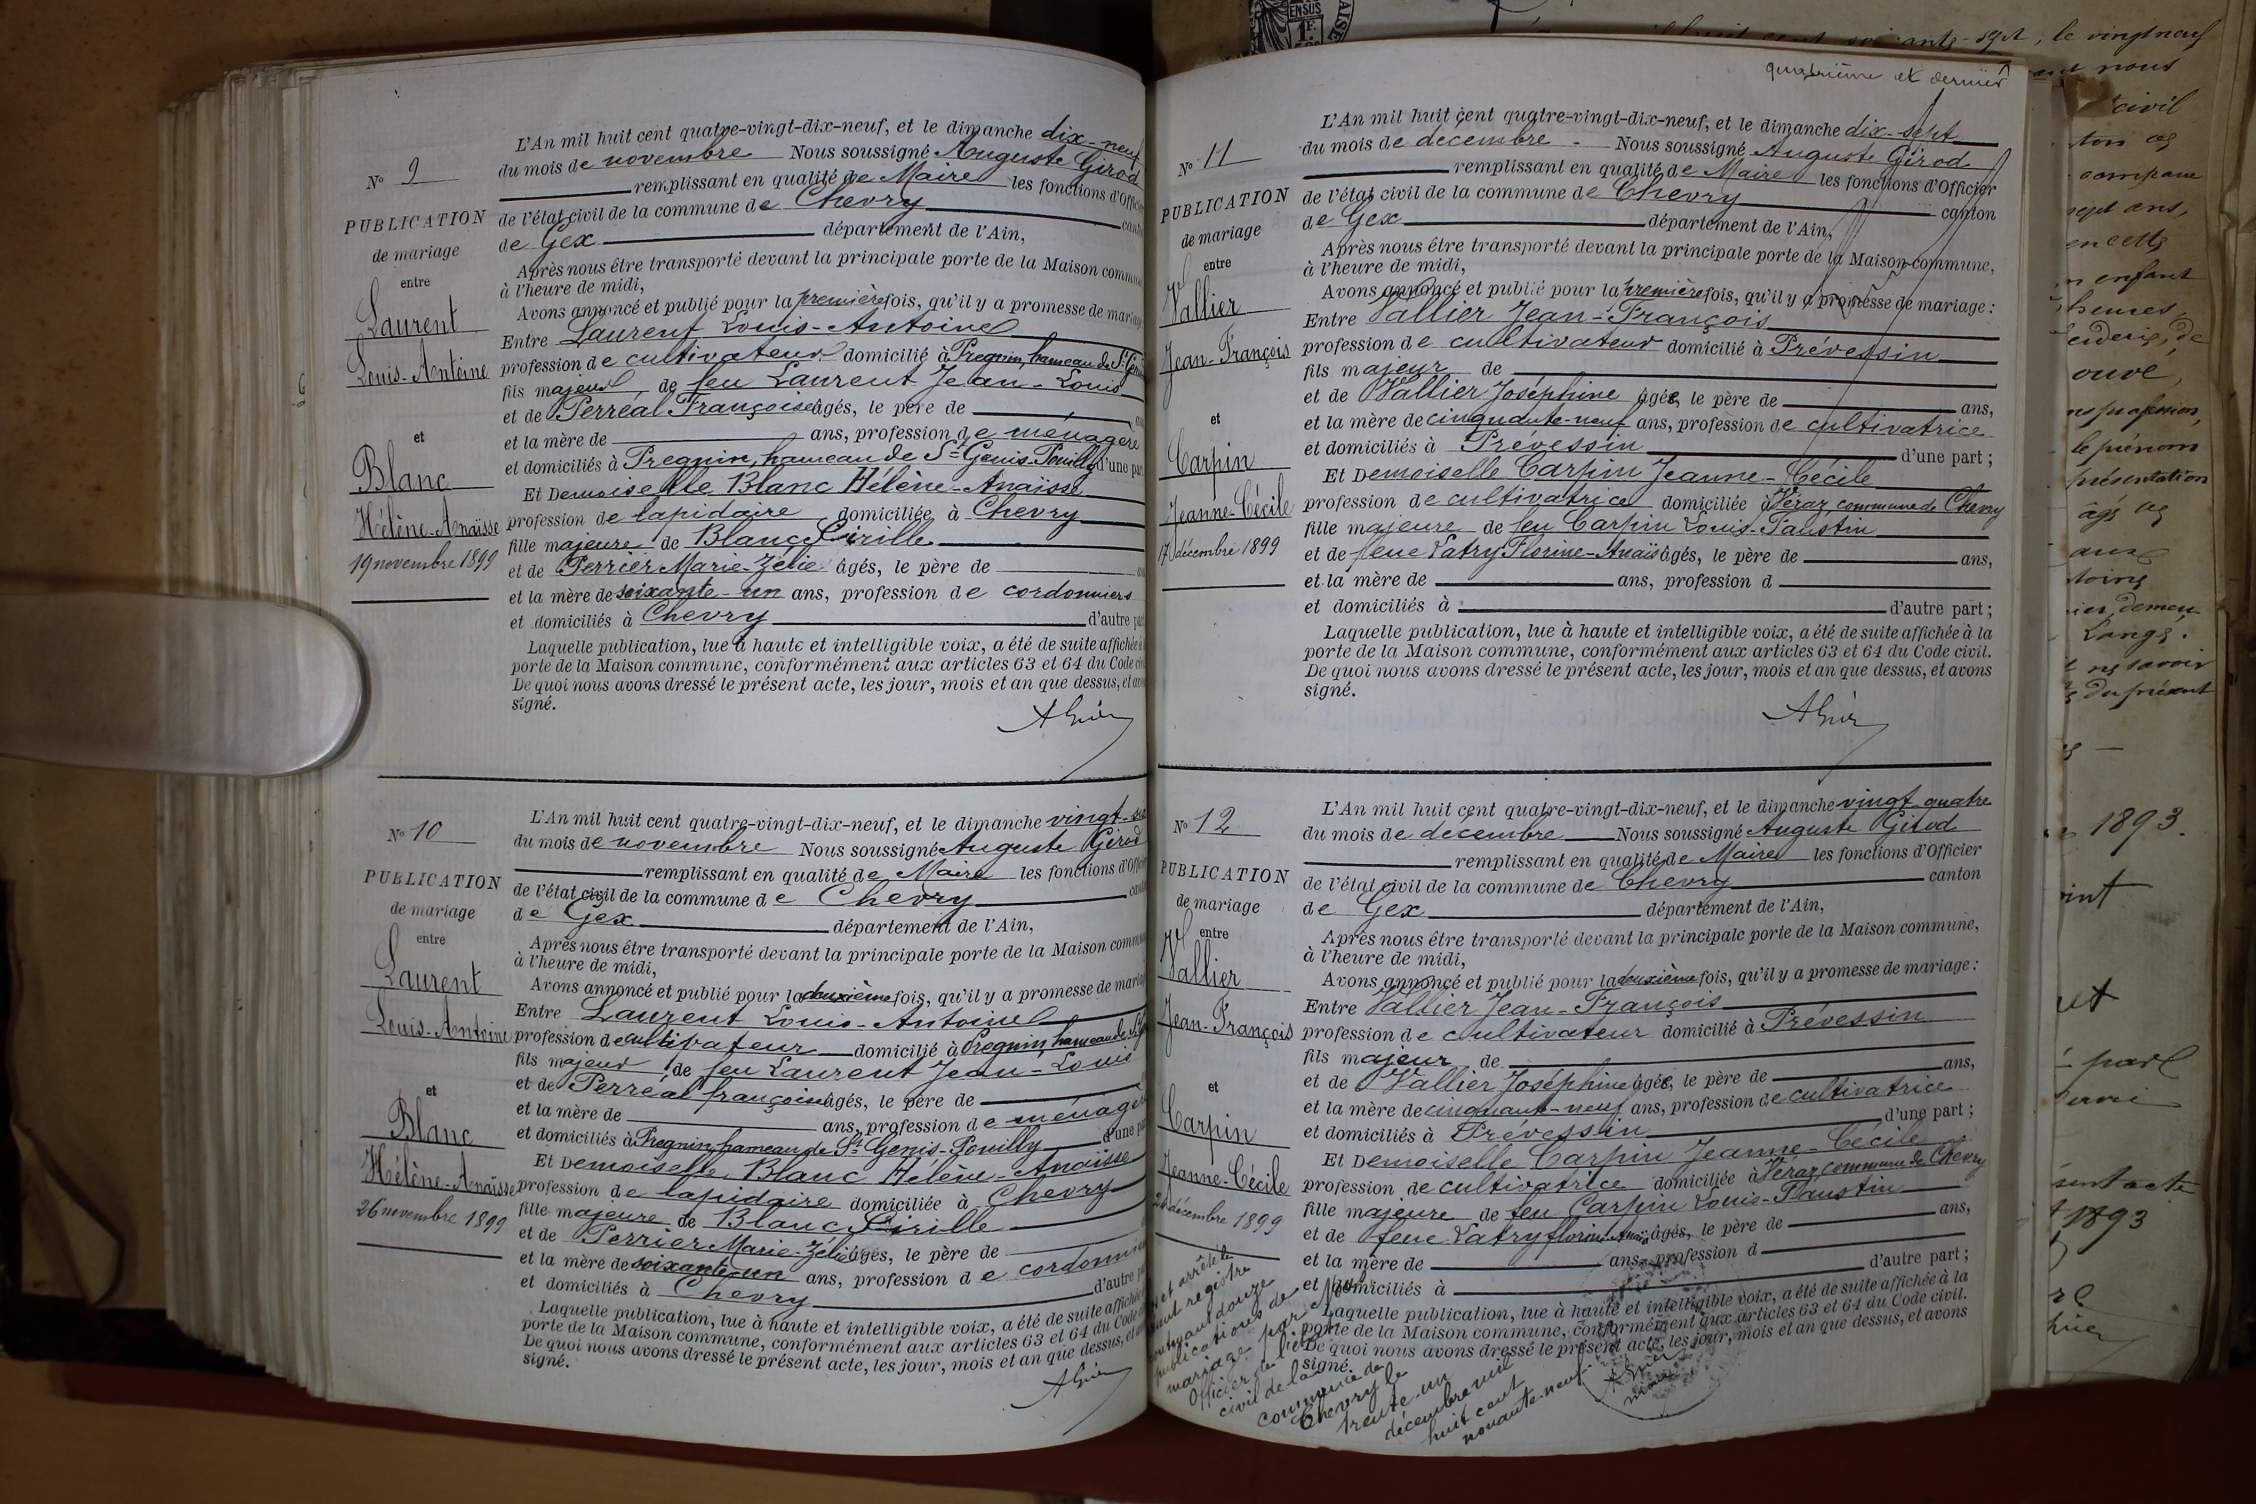 N° 9
PUBLICATION
de mariage
entre
Laurent
Louis-Antoine
et
Blanc
Hélène-Anaïsse
19 novembre 1899
L'An mil huit cent quatre-vingt-dix-neuf, et le dimanche dix-neuf
du mois de novembre Nous soussigné Auguste Girod
remplissant en qualité de Maire les fonctions d'Offici
de l'état civil de la commune de Chevry cant
de Gex département de l'Ain,
Après nous être transporté devant la principale porte de la Maison commu
à l'heure de midi,
Avons annoncé et publié pour la première fois, qu'il y a promesse de maria
Entre Laurent Louis-Antoine
profession de cultivateur domicilié à Pregnin, hameau de St Genis
fils majeur de feu Laurent Jean-Louis
et de Perréal Françoise âgés, le père de
et la mère de ans, profession de ménagère
et domiciliés à Pregnin, hameau de St Genis-Pouilly d'une par
Et Demoiselle Blanc Hélène-Anaïsse
profession de lapidaire domiciliée à Chevry
fille majeure de Blanc Cirille
et de Perrier Marie-Zélie âgés, le père de
et la mère de soixante-un ans, profession de cordonniers
et domiciliés à Chevry d'autre part
Laquelle publication, lue à haute et intelligible voix, a été de suite affichée à
porte de la Maison commune, conformément aux articles 63 et 64 du Code civ
De quoi nous avons dressé le présent acte, les jour, mois et an que dessus, et avo
signé.
N° 10
PUBLICATION
de mariage
entre
Laurent
Louis-Antoine
et
Blanc
Hélène-Anaïsse
26 novembre 1899
L'An mil huit cent quatre-vingt-dix-neuf, et le dimanche vingt-six
du mois de novembre Nous soussigné Auguste Girod
remplissant en qualité de Maire les fonctions d'Offici
de l'état civil de la commune de Chevry canto
de Gex département de l'Ain,
Après nous être transporté devant la principale porte de la Maison commun
à l'heure de midi,
Avons annoncé et publié pour la deuxième fois, qu'il y a promesse de maria
Entre Laurent Louis-Antoine
profession de cultivateur domicilié à Pregnin, hameau de St
fils majeur de feu Laurent Jean-Louis
et de Perréal françoise âgés, le père de
et la mère de ans, profession de ménagère
et domiciliés à Pregnin, hameau de St Genis-Pouilly d'une pa
Et Demoiselle Blanc Hélène-Anaïsse
profession de lapidaire domiciliée à Chevry
fille majeure de Blanc Cirille
et de Perrier Marie-Zélie âgés, le père de
et la mère de soixante-un ans, profession de cordonnier
et domiciliés à Chevry d'autre pa
Laquelle publication, lue à haute et intelligible voix, a été de suite affichée
porte de la Maison commune, conformément aux articles 63 et 64 du Code
De quoi nous avons dressé le présent acte, les jour, mois et an que dessus, et
signé.
quatrième et dernier
N° 11
PUBLICATION
de mariage
entre
Vallier
Jean-François
et
Carpin
Jeanne-Cécile
17 décembre 1899
L'An mil huit cent quatre-vingt-dix-neuf, et le dimanche dix-sept
du mois de décembre Nous soussigné Auguste Girod
remplissant en qualité de Maire les fonctions d'Officier
de l'état civil de la commune de Chevry canton
de Gex département de l'Ain,
Après nous être transporté devant la principale porte de la Maison commune,
à l'heure de midi,
Avons annoncé et publié pour la première fois, qu'il y a promesse de mariage :
Entre Vallier Jean-François
profession de cultivateur domicilié à Prévessin
fils majeur de
et de Vallier Joséphine âgée, le père de ans,
et la mère de cinquante-neuf ans, profession de cultivatrice
et domiciliés à Prévessin d'une part ;
Et Demoiselle Carpin Jeanne-Cécile
profession de cultivatrice domiciliée à Véraz, commune de Chevry
fille majeure de feu Carpin Louis-Faustin
et de feue Latry Florine-Anaïs âgés, le père de ans,
et la mère de ans, profession d
et domiciliés à d'autre part ;
Laquelle publication, lue à haute et intelligible voix, a été de suite affichée à la
porte de la Maison commune, conformément aux articles 63 et 64 du Code civil.
De quoi nous avons dressé le présent acte, les jour, mois et an que dessus, et avons
signé.
N° 12
PUBLICATION
de mariage
entre
Vallier
Jean-François
et
Carpin
Jeanne-Cécile
24 décembre 1899
L'An mil huit cent quatre-vingt-dix-neuf, et le dimanche vingt-quatre
du mois de décembre Nous soussigné Auguste Girod
remplissant en qualité de Maire les fonctions d'Officier
de l'état civil de la commune de Chevry canton
de Gex département de l'Ain,
Après nous être transporté devant la principale porte de la Maison commune,
à l'heure de midi,
Avons annoncé et publié pour la deuxième fois, qu'il y a promesse de mariage :
Entre Vallier Jean-François
profession de cultivateur domicilié à Prévessin
fils majeur de
et de Vallier Joséphine âgée, le père de ans,
et la mère de cinquante-neuf ans, profession de cultivatrice
et domiciliés à Prévessin d'une part ;
Et Demoiselle Carpin Jeanne-Cécile
profession de cultivatrice domiciliée à Véraz, commune de Chevry
fille majeure de feu Carpin Louis-Faustin
et de feue Latry florine-Anaïs âgés, le père de ans,
et la mère de ans, profession d
et domiciliés à d'autre part ;
Laquelle publication, lue à haute et intelligible voix, a été de suite affichée à la
porte de la Maison commune, conformément aux articles 63 et 64 du Code civil.
De quoi nous avons dressé le présent acte, les jour, mois et an que dessus, et avons
signé.
et arrêté le
registre
douze
publications de
mariage par Nous
Officier de l'état
civil de la
commune de
Chevry le
trente-un
décembre mil
huit cent
nonante-neuf
le vingtneuf
nous
civil
ans,
enfant
profession,
le prénom
présentation
1893.
1893